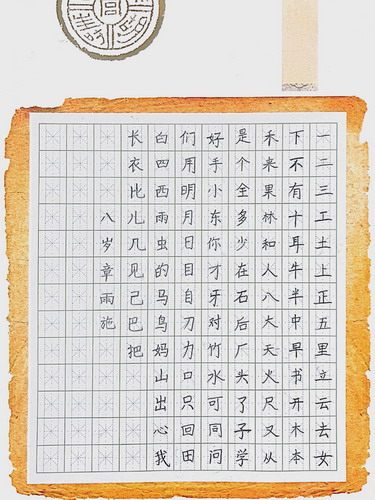 一二三工土上正五里立云去女
下不有十耳牛半中早书开木本
禾来果林和人八大天火尺又从
是个全多少在石后厂头了子学
好手小东你才牙对竹水可同问
们用明月日目自刀力口只回田
白四西雨虫的马鸟妈山出心我
长衣比儿几见己巴把
八岁章雨施